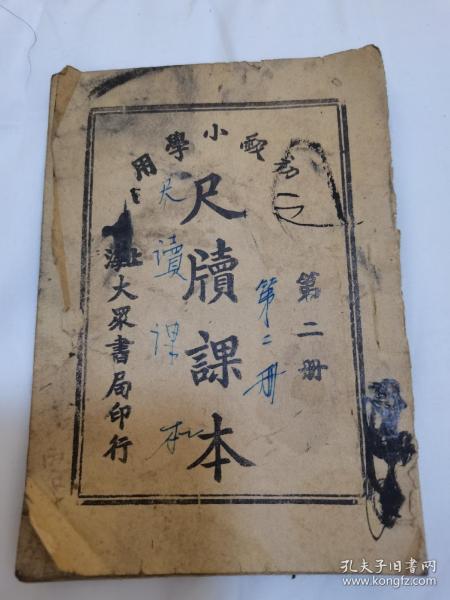 小學用
第二册
第二册
尺牘課本
尺讀课本
上海大眾書局印行
孔夫子旧书网
www.kongfz.com